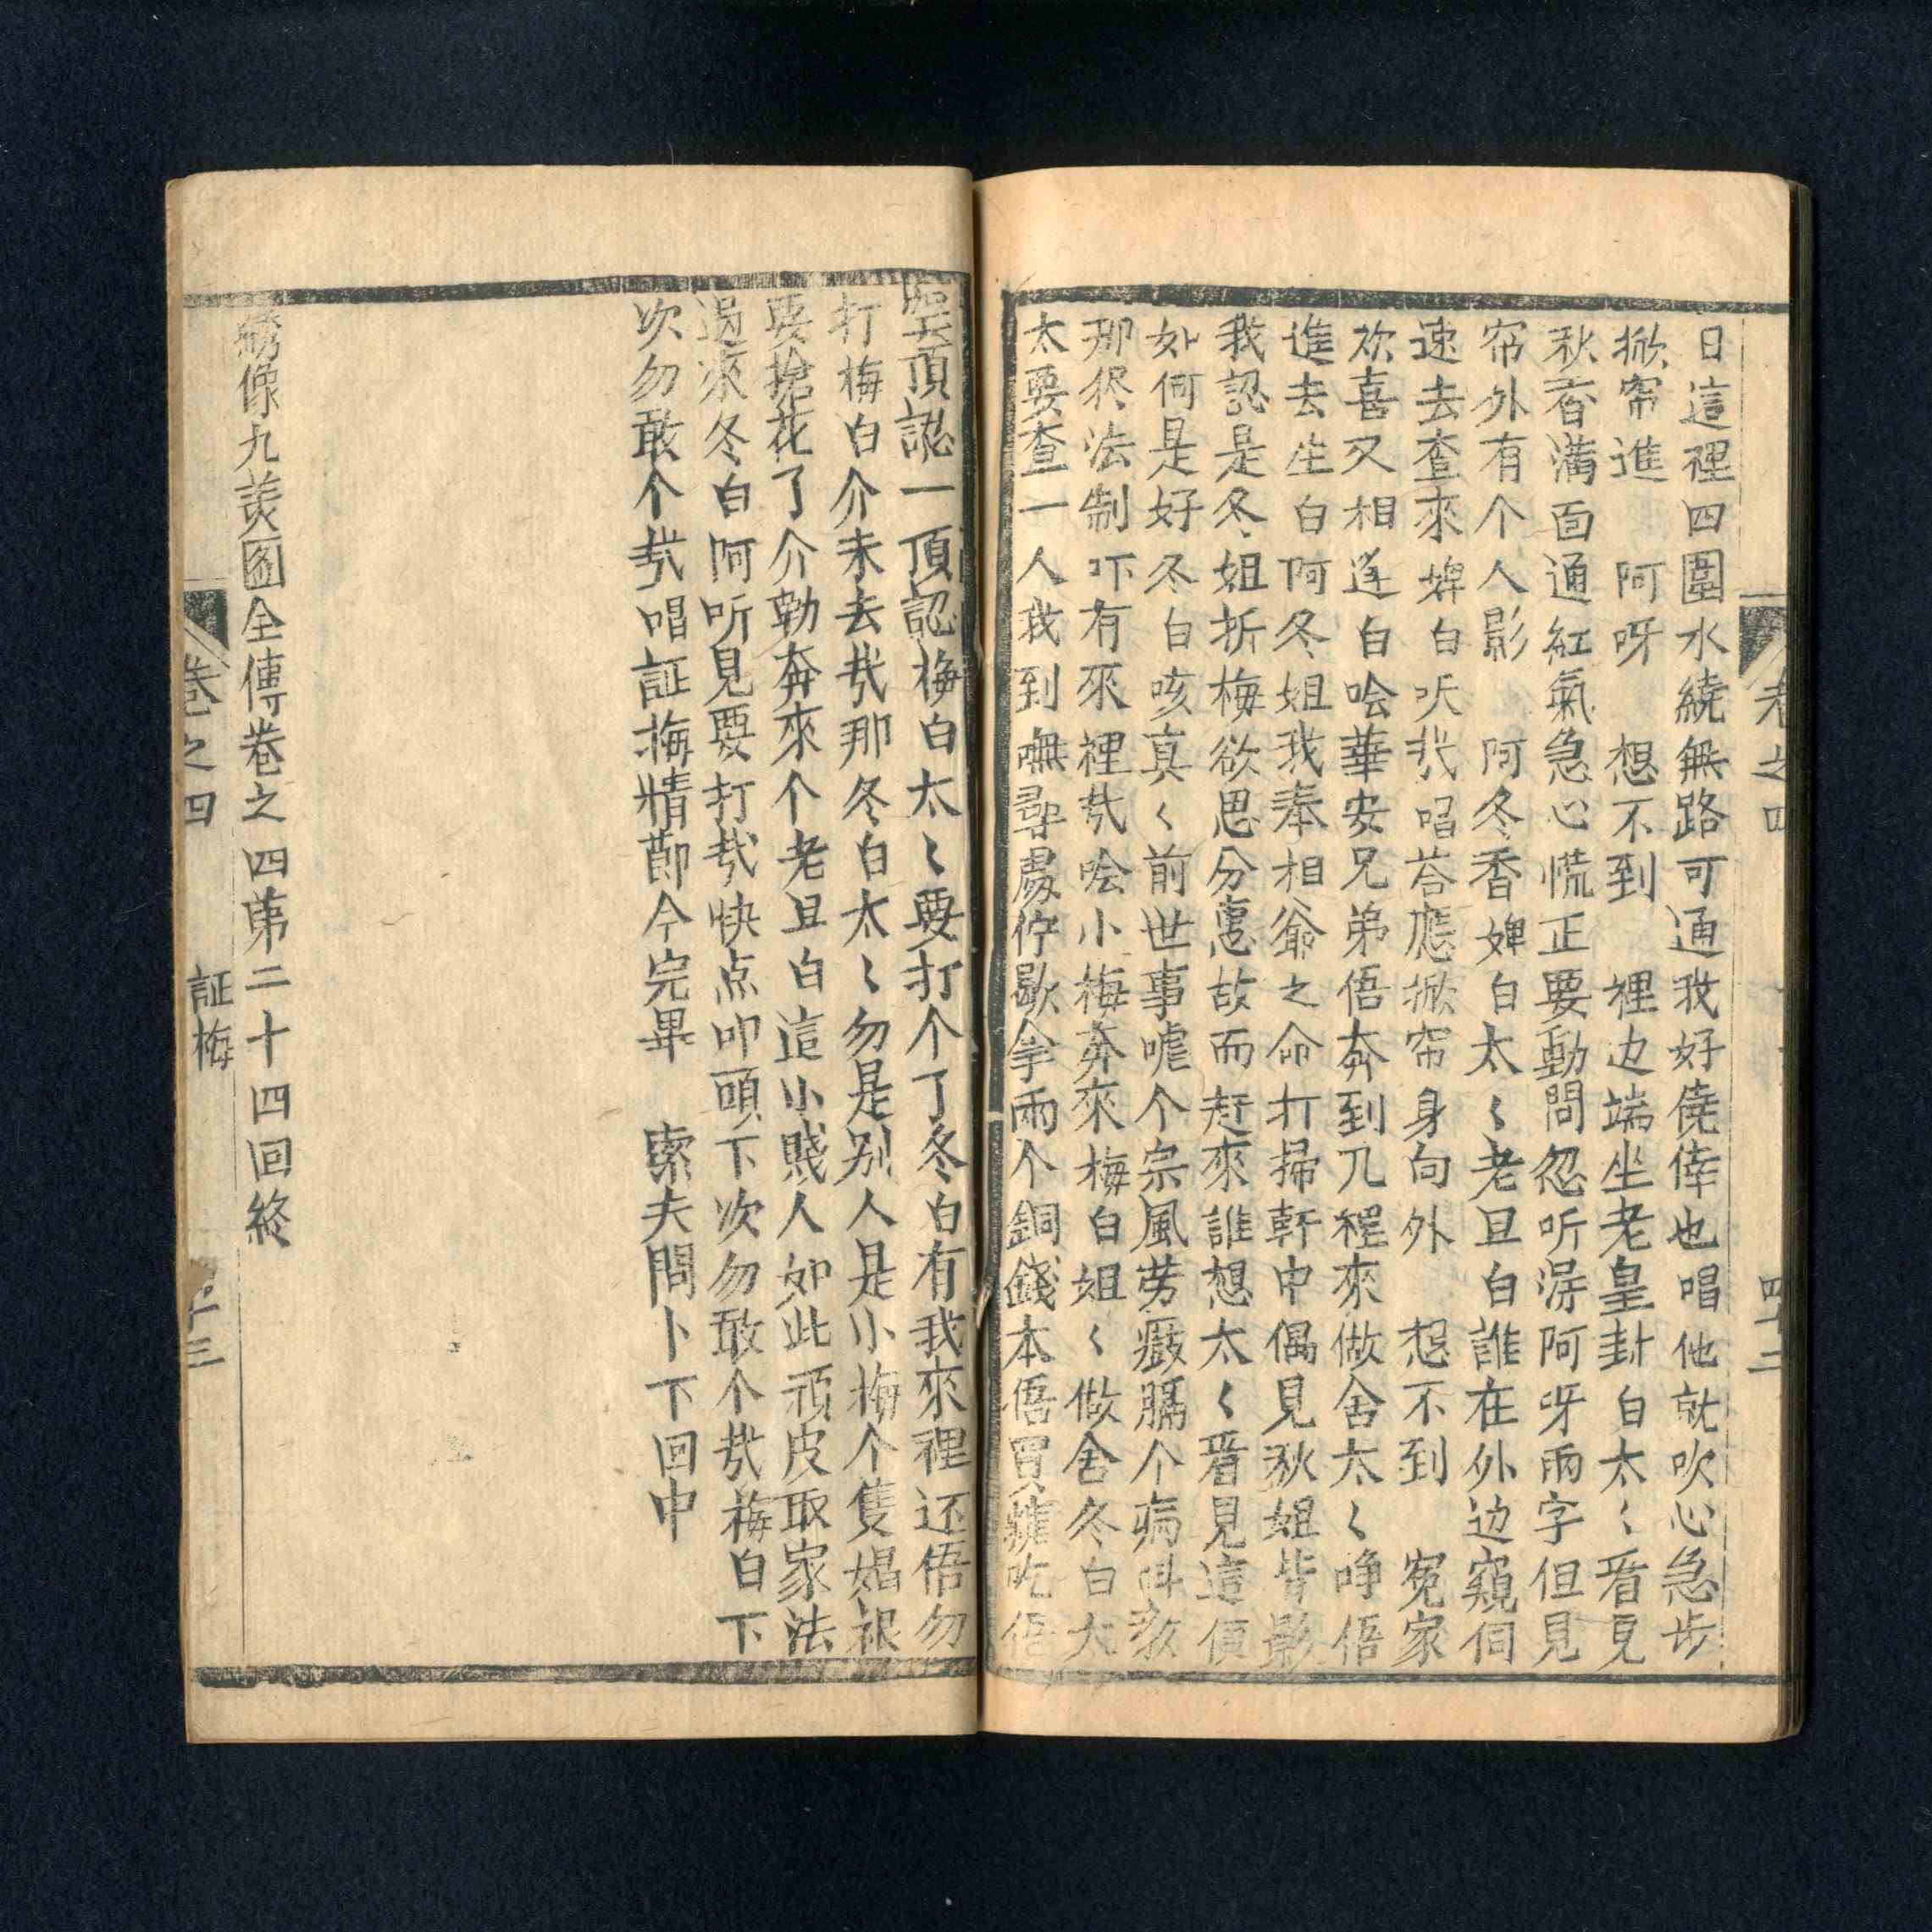 卷之四
四十二
日這裡四圍水繞無路可通我好僥倖也唱他就吹心急步
掀帘進 阿呀 想不到 裡边端坐老皇封白太〻㸔見
秋香滿面通紅氣急心慌正要動問忽听淂阿呀兩字但見
帘外有个人影 阿冬香婢白太〻老旦白誰在外边窺伺
速去查來婢白 唱荅應掀帘身向外 想不到 寃家
欢喜又相逢白唅華安兄弟俉奔到兀裡來做舍太〻 俉
進去生白阿冬姐我奉相爺之命打掃軒中偶見秋姐 影
我認是冬姐折梅欲思分 故而赶來誰想太〻㸔見這 
如何是好冬白咳真〻前世事嘘个宗風劳 膈个病
那 法制吓有來裡 唅小梅奔來梅白姐〻做舍冬白太
太要查一人我到嘸尋處佇歇拿兩个銅錢本俉買糖吃俉
頂認一頂認梅白太〻要打个了冬白有我來裡还俉勿
打梅白介未去 那冬白太〻勿是别人是小梅个隻娼根
要搶花了介勃奔來个老旦白這小賤人如此頑皮取家法
過來冬白阿听見要打 快点叩頭下次勿敢个 梅白下
次勿敢个 唱証梅情莭今完畢 索夫問卜下回中
綉像九美图全傳卷之四苐二十四回終
卷之四
証梅
十三